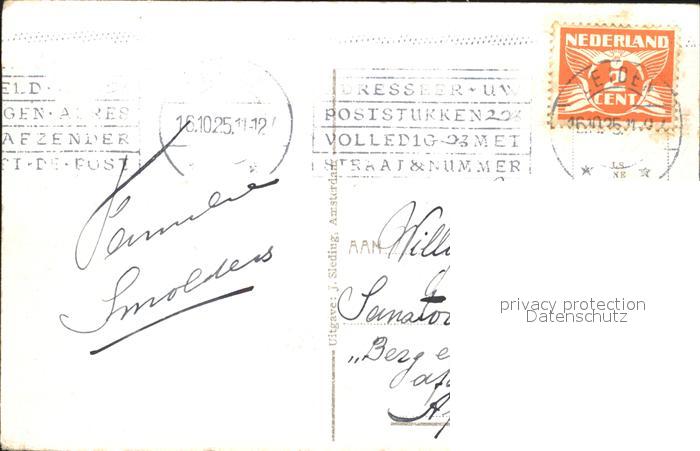 NEDERLAND
2
CENT
ELD
GEN ADRES
AFZENDER
DE POST
16.10.25.11-12
ADRESSEER UW
POSTSTUKKEN ZOO
VOLLEDIG MET
STRAAT & NUMMER
16.10.25.11
Familie
Smolders
Uitgave: J. Sleding, Amsterdam
AAN
Will
Sanator
„Berg e
afd
Ap
privacy protection
Datenschutz